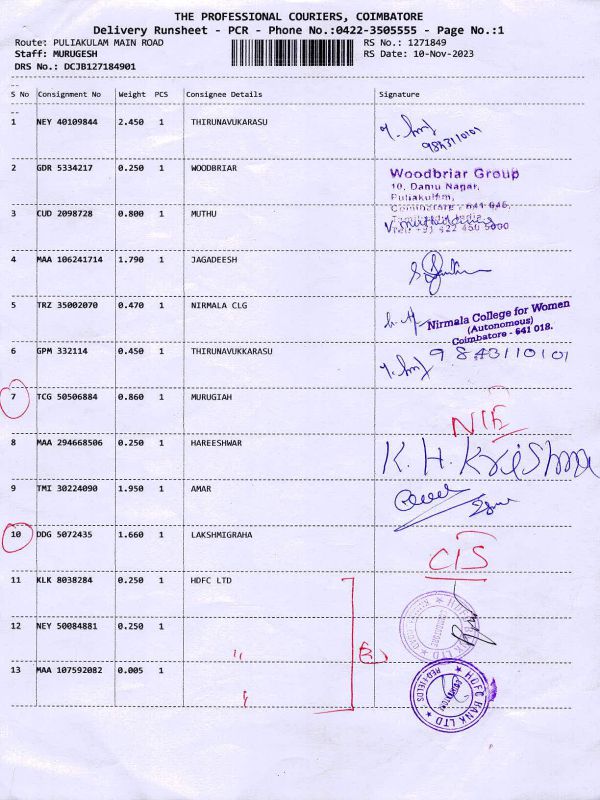 THE PROFESSIONAL COURIERS, COIMBATORE
Delivery Runsheet - PCR - Phone No.:0422-3505555 - Page No.:1
Route: PULIAKULAM MAIN ROAD RS No.: 1271849
Staff: MURUGESH RS Date: 10-Nov-2023
DRS No.: DCJB127184901
S No Consignment No Weight PCS Consignee Details Signature
1 NEY 40109844 2.450 1 THIRUNAVUKARASU
9843110101
2 GDR 5334217 0.250 1 WOODBRIAR
Woodbriar Group
10, Damu Nagar,
Puliakulam,
Coimbatore - 641 045,
Tamilnadu, India
3 CUD 2098728 0.800 1 MUTHU
Tel: +91 422 450 5000
4 MAA 106241714 1.790 1 JAGADEESH
5 TRZ 35002070 0.470 1 NIRMALA CLG
Nirmala College for Women
(Autonomous)
Coimbatore - 641 018.
6 GPM 332114 0.450 1 THIRUNAVUKKARASU
9843110101
7 TCG 50506884 0.860 1 MURUGIAH
8 MAA 294668506 0.250 1 HAREESHWAR
K. H. Krishna
9 TMI 30224090 1.950 1 AMAR
10 DDG 5072435 1.660 1 LAKSHMIGRAHA
CIS
11 KLK 8038284 0.250 1 HDFC LTD
12 NEY 50084881 0.250 1 "
HDFC BANK LTD
13 MAA 107592082 0.005 1
HDFC BANK LTD
RED-FIELDS